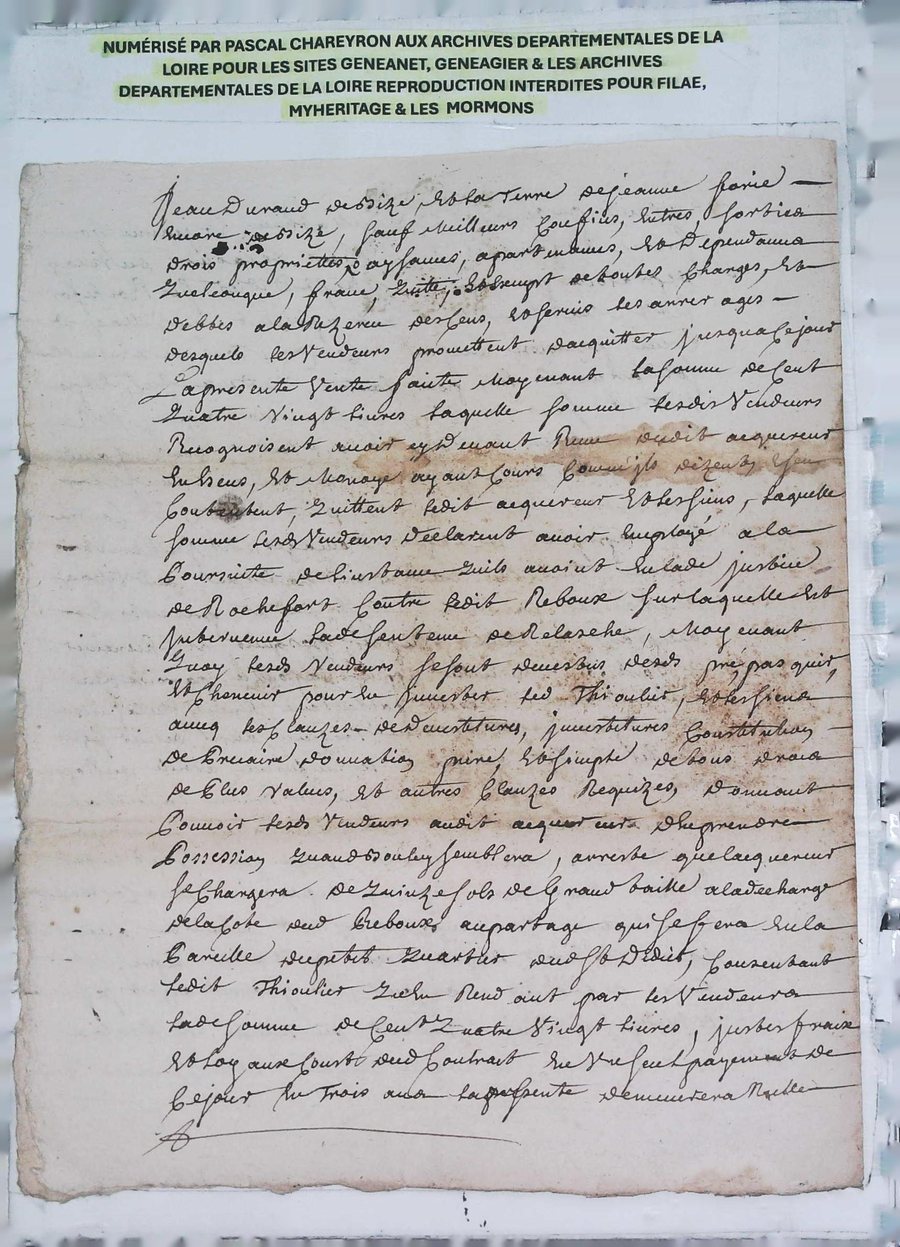 NUMÉRISÉ PAR PASCAL CHAREYRON AUX ARCHIVES DEPARTEMENTALES DE LA
LOIRE POUR LES SITES GENEANET, GENEAGIER & LES ARCHIVES
DEPARTEMENTALES DE LA LOIRE REPRODUCTION INTERDITES POUR FILAE,
MYHERITAGE & LES MORMONS
Jean Durand de bize, et la Terre de jeanne forie
encore de bize, sauf meilleurs Confins, entres sorties
drois proprietés aysances, apartenances, et Dependances
Quelconque, franc, quitte, et Exempt de toutes Charges, et
debtes a la Rezerve des Cens, et servis les arrerages
desquels les Vendeurs promettent dacquitter jusqua Ce jour
La presente Vente faitte moyenant la somme de Cent
Quatre Vingt livres laquelle somme lesdis Vendeurs
Recognoisent avoir cy devant Receu dudit acquereur
en Especes, et Monoye ayant Cours Comm'ils dizent,
Contentent, Quittent ledit acquereur et les siens, laquelle
somme lesds Vendeurs Declarent avoir Employé a la
Poursuitte de l'instance quils avoint en lade justice
de Rochefort Contre ledit Reboux sur laquelle est
jntervenue lade sentence de Relasche, Moyenant
Quoy lesds Vendeurs se sont devestus desds pré, pasquir,
et Chenevir pour en jnvestir led Thioulier, et les siens
avecq les Clauzes de Devestitures, jnvestitures Constitution
de Precaire donnation pure, et simple de tous drois
de Plus Values, et autres Clauzes Requizes, donnant
Pouvoir lesds Vendeurs audit acquereur d'en prendre
Possession quand bon luy semblera, arresté que lacquereur
se Chargera de quinze sols de Grand taille a la decharge
de la Cote dud Reboux au partage qui se fera en la
Parcelle du petit Quartier dud St Didier, Consentant
ledit Thioulier qu'en Rendant par les Vendeurs
lade somme de Cent Quatre Vingt livres, justes fraix
et loyaux Couts dud Contrait en Un seul payement de
Ce jour en Trois ans la presente demeurera Nulle